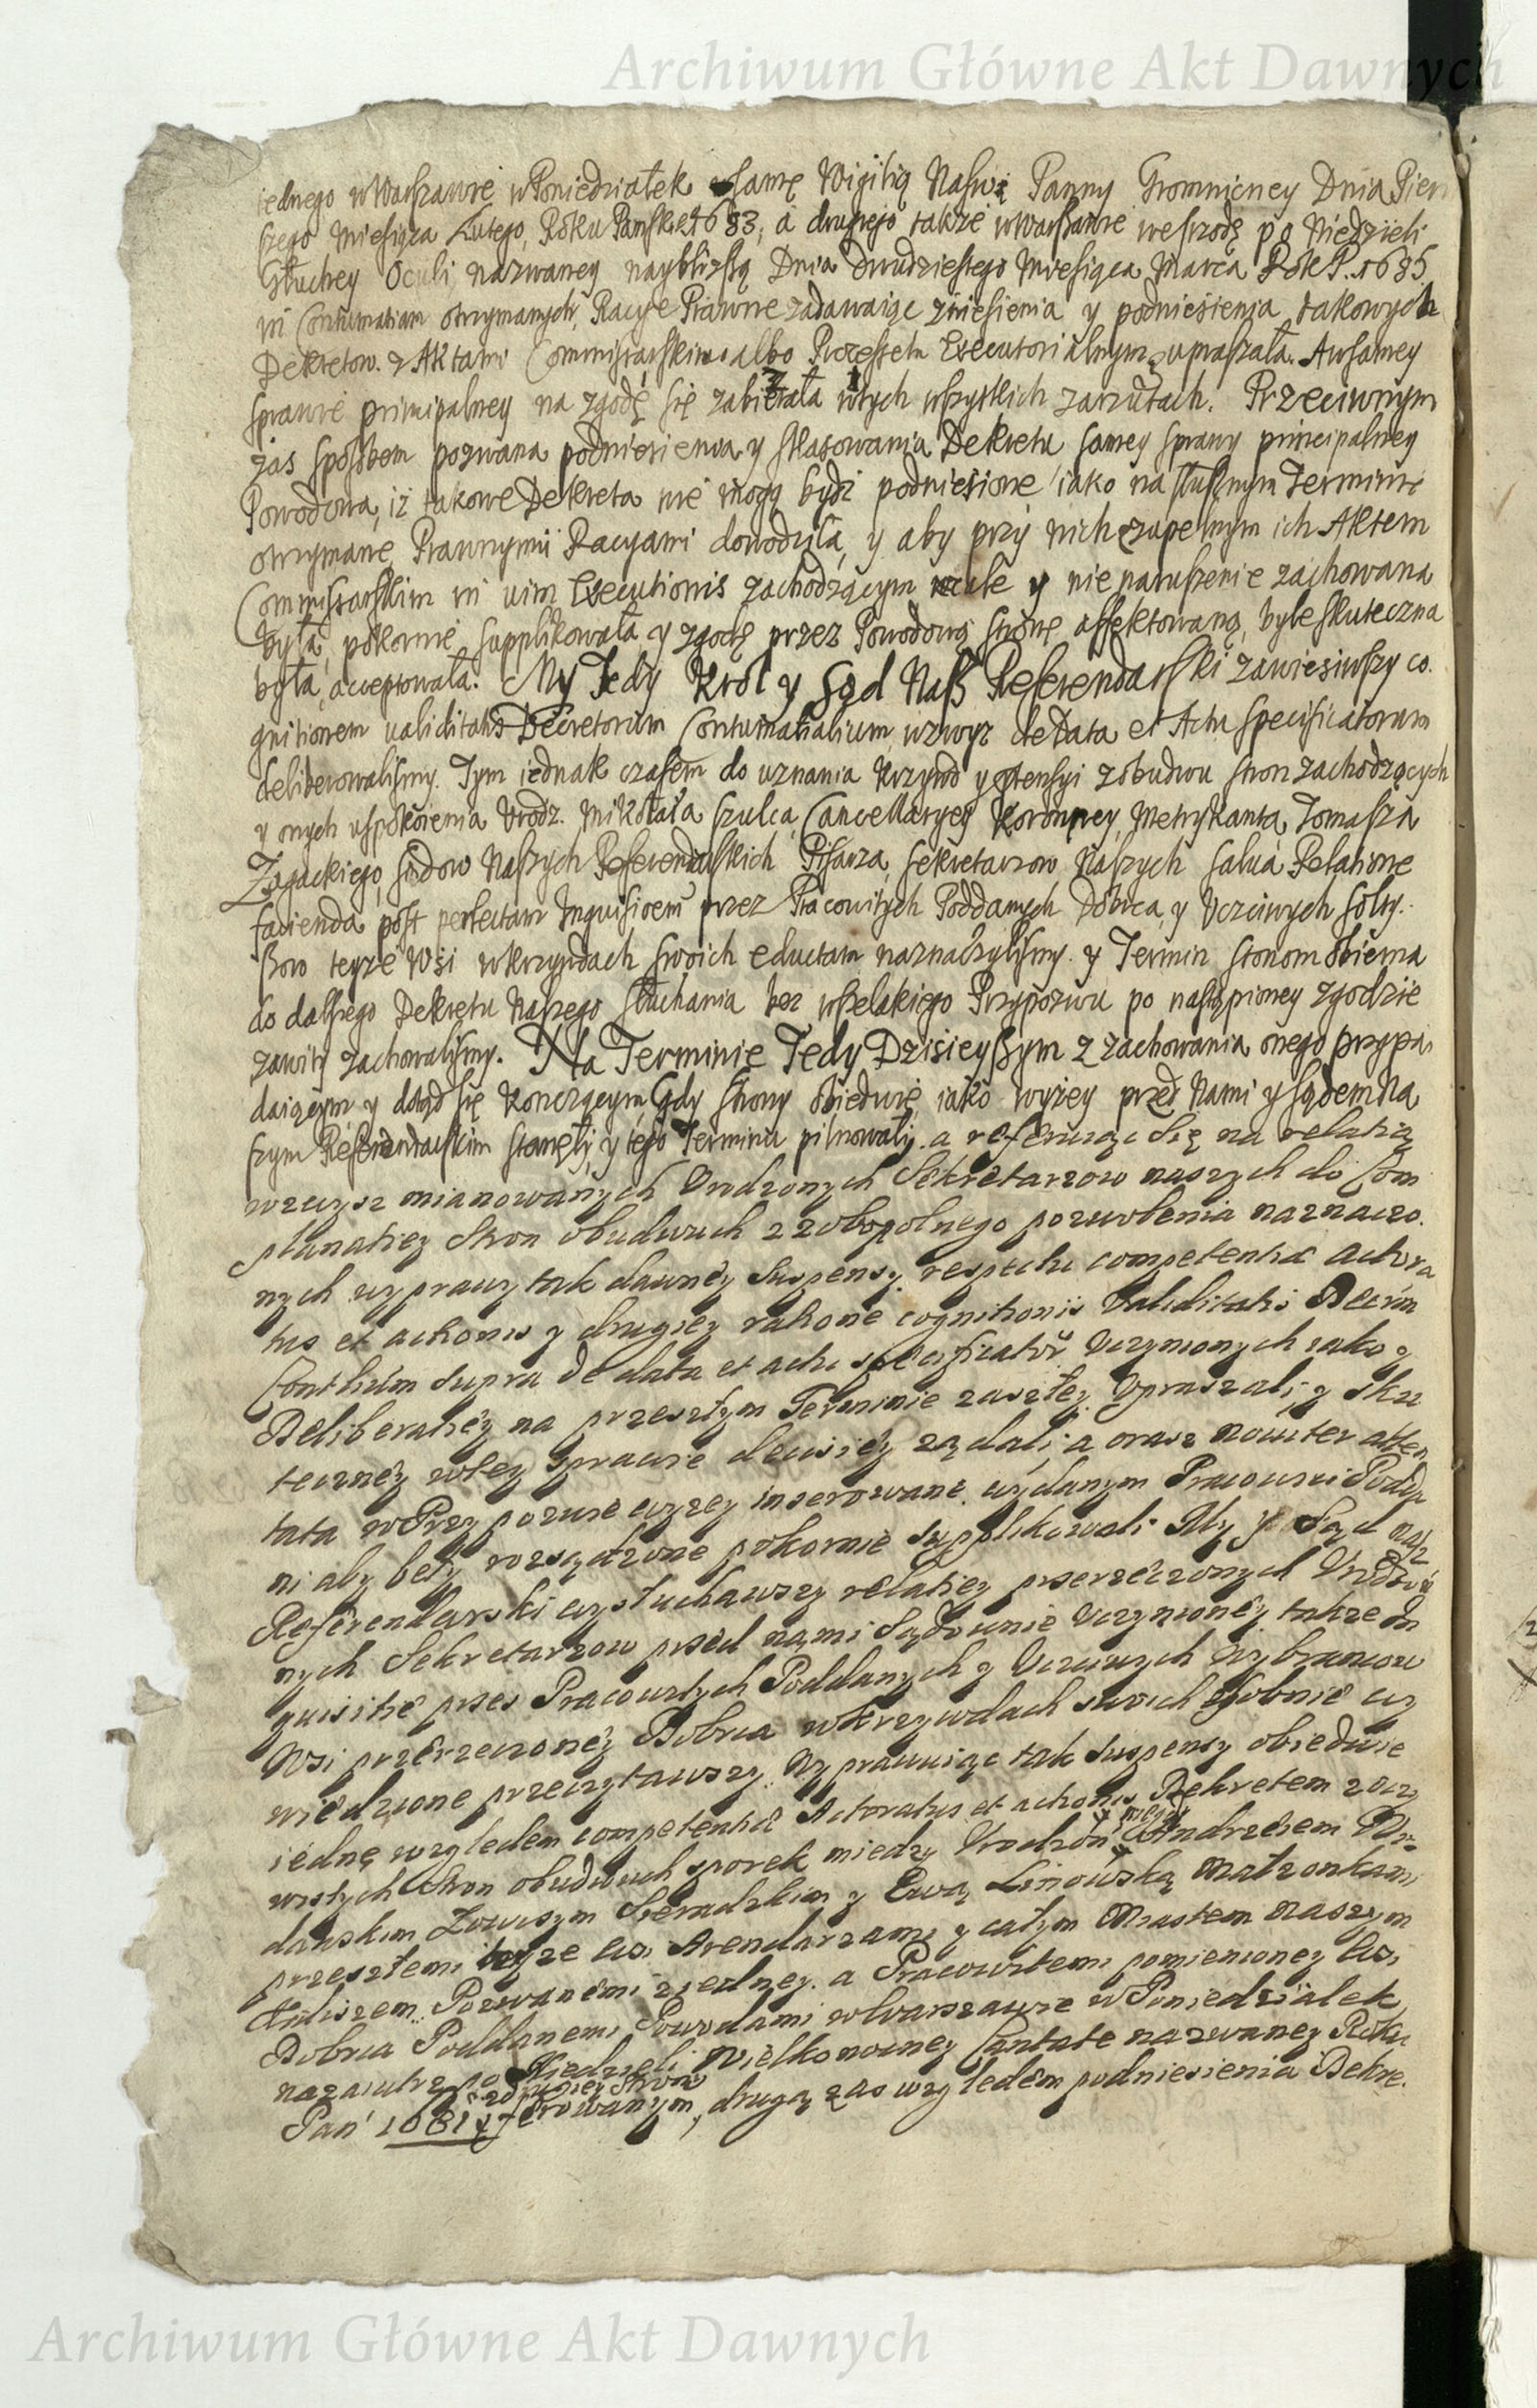 Archiwum Główne Akt Dawnych
iednego w Warszawie w Poniedziałek w samę Wigilią Naświę: Panny Gromniczney Dnia Pierw
szego Miesiąca Lutego, Roku Pańsk: 1683, a drugiego także w Warszawie we szrodę po Niedzieli
Głuchey Oculi nazwaney naybliższą Dnia dwudziestego Miesiąca Marca Rok P. 1685
in Contumatiam otrzymanych, Racye Prawne zadawaiąc zniesienia y podniesienia takowych
Dekretow z Aktami Commissarskiemi albo Processem Executorialnym upraszała. A w samey
sprawie principalney na zgodę się zabierała w tych wszystkich zarzutach. Przeciwnym
zas sposobem pozwana podniesienia y skasowania Dekretu samey sprawy principalney
Powodowa, iż takowe Dekreta nie mogą bydź podniesione iako na słusznym Terminie
otrzymane, Prawnymi Racyami dowodziła, y aby przy nich zupełnym ich Aktem
Commissarskim in vim Executionis zachodzącym wcale y nienaruszenie zachowana
była, pokornie supplikowała y zgodę przez Powodową stronę affektowaną, byle skuteczna
była, acceptowała. My Tedy Krol y Sąd Nasz Referendarski zawiesiwszy co
gnitionem validitatis Decretorum Contumatialium wzwyż de Data et Actu specificatorum
deliberowaliśmy. Tym iednak czasem do uznania krzywd y pretensyi z obudwu stron zachodzących
y onych uspokoienia Urodz. Mikołaia Szulca, Cancellaryey Koronney Metrykanta, Tomasza
Zagackiego, sądow Naszych Referendarskich Pisarza, sekretarzow Naszych salva Relatione
facienda post perfectam Inquisitioem przez Pracowitych Poddanych Dobrca, y Uczciwych sołty.
sow teyże Wsi w krzywdach swoich eductam naznaczyliśmy. y Termin stronom obiema
do dalszego Dekretu Naszego słuchania bez wszelakiego Przypozwu po nastąpioney zgodzie
zawity zachowaliśmy. Na Terminie Tedy Dzisieyszym z zachowania onego przypa
daiącym y dotąd się konczącym Gdy strony obiedwie iako wyżey przed Nami y sądem Na
szym Referendarskim stanęły, y tego Terminu pilnowały, a referuiąc się na relatią
wzwysz mianowanych Urodzonych Sekretarzow naszych do Com
planatiey Stron obudwuch z zobopolnego pozwolenia naznaczo.
nych wyprawy tak dawnéy Suspensy respectu competentiae actora
tus et actionis y drugiey ratione cognitionis Validitatis Decretor
Contlium supra de data et actu specificator Uczynionych iako y
Deliberatiéy na przeszłym Terminie zaszłey Upraszali, y sku
teczney w tey sprawie decisiéy żądali, a oraz noviter atten
tata w Przypozwie wyżey inserowane wydanym Pracowici Podda
ni aby były rozsądzone pokornie Supplikowali My y Sąd nasz
Referendarski wysłuchawszy relatiey przerzeczonych Urodzo
nych Sekretarzow przed nami Sądownie Uczynionéy takze In
quisitie przes Pracowitych Poddanych y Uczciwych Wybrancow
Wsi przerzeczonéy Dobrca w krzywdach swoich osobnie wy
wiedzione przeczytawszy. Wyprawuiąc tak Suspensy obiedwie
iednę względem competentiae Actoratus et actionis Dekretem zoczy
wistych Stron obudwuch sporek miedzy Urodzonymi niegdy Andrzeiem
dawskim Łowczym Sieradzkim y Ewą Linowską Małzonkami
przeszłemi teyze wsi Arendarzami y całym Miastem naszym
Kaliszem Pozwanémi z iedney. a Pracowitemi pomienioney wsi
Dobrca Poddanemi Powodami w Warszawie w Poniedziałek
nazaiutrz po Niedzieli Wielkonocney Cantate nazwaney Roku
Pań 1681 z drugiey strony ferowanym, drugą zas względém podniesienia Dekre.
Archiwum Główne Akt Dawnych